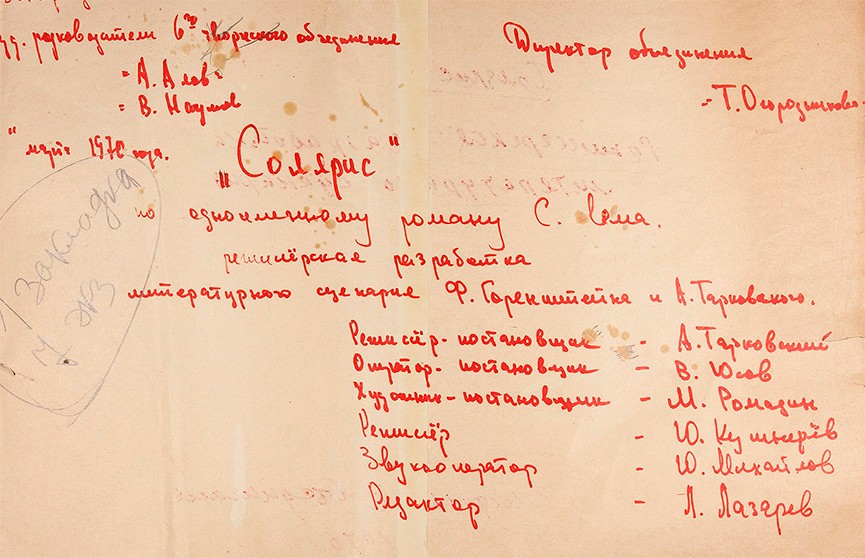 худ. руководители 6го творческого объединения
= А. Алов =
= В. Наумов
Директор объединения
= Т. Огородникова
"март" 1970 года.
"Солярис"
по одноименному роману С. Лема.
режиссёрская разработка
литературного сценария Ф. Горенштейна и А. Тарковского.
1 закладка
4 экз
Режиссёр-постановщик - А. Тарковский
Оператор-постановщик - В. Юсов
Художник-постановщик - М. Ромадин
Режиссёр - Ю. Кушнерёв
Звукооператор - Ю. Михайлов
Редактор - Л. Лазарев